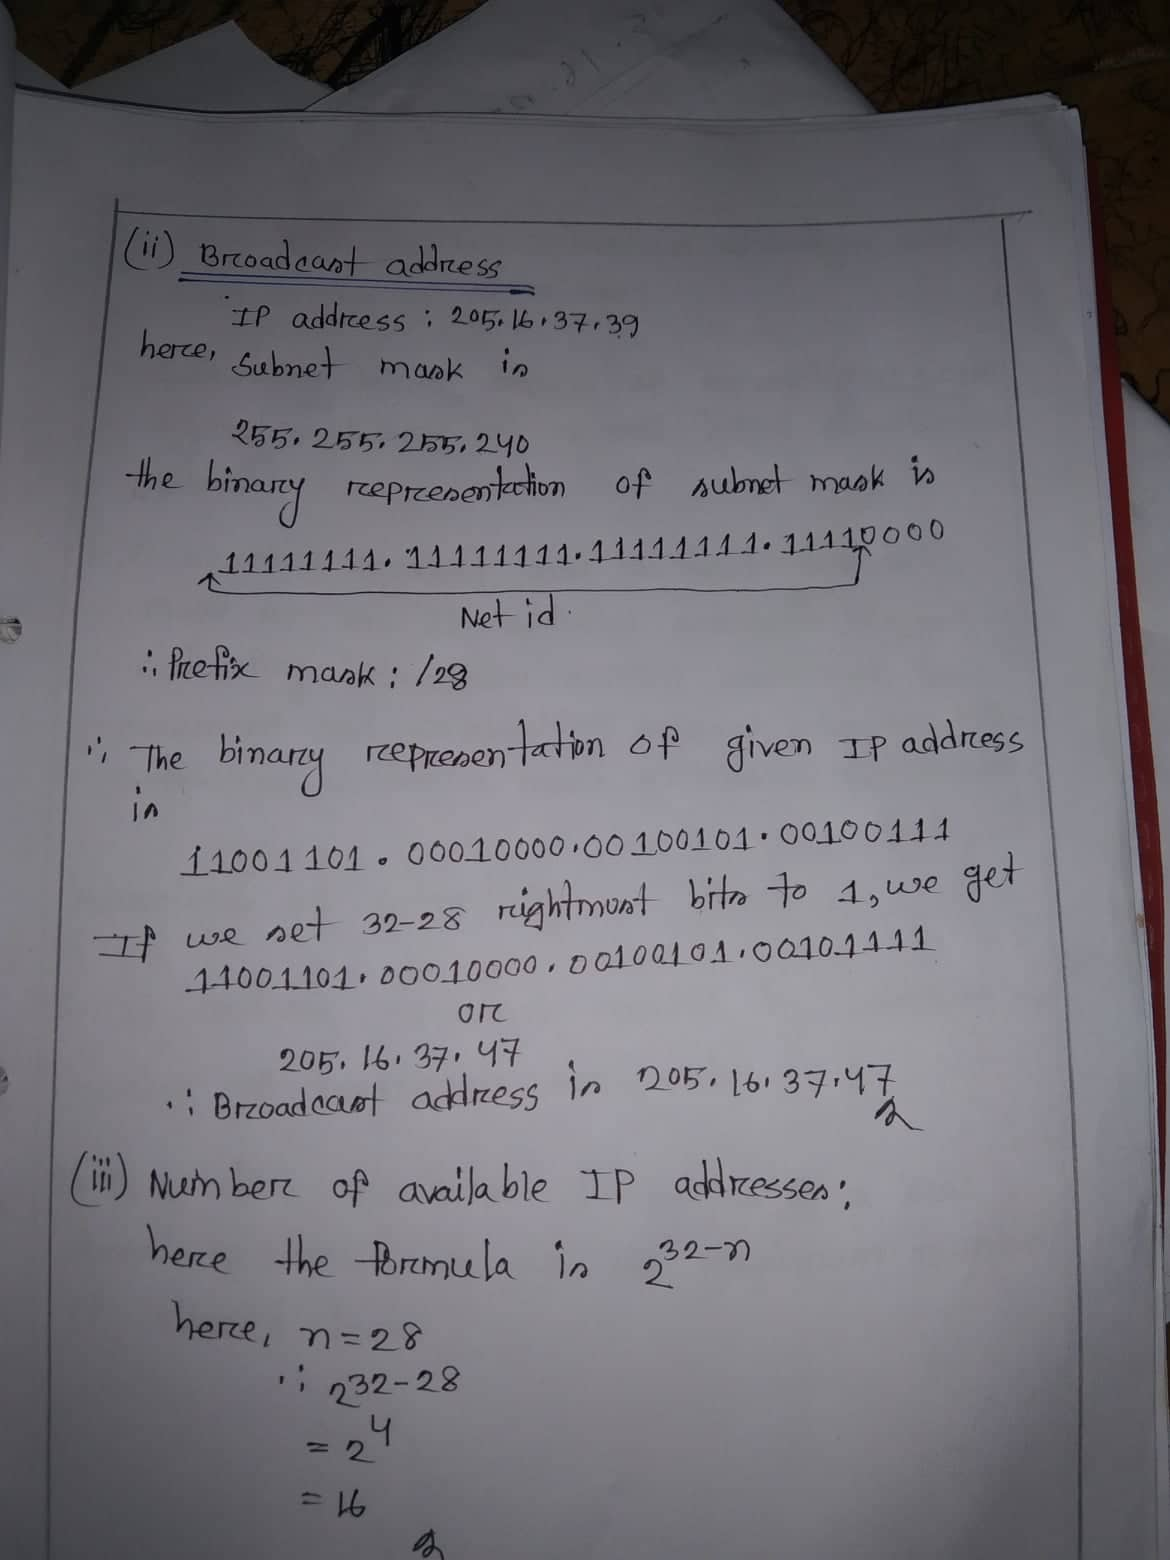 (ii) Broadcast address
IP address : 205.16.37.39
here, Subnet mask is
255.255.255.240
the binary representation of subnet mask is
11111111.11111111.11111111.11110000
Net id.
∴ Prefix mask : /28
∴ The binary representation of given IP address
is
11001101.00010000.00100101.00100111
If we set 32-28 rightmost bits to 1, we get
11001101.00010000.00100101.00101111
or
205.16.37.47
∴ Broadcast address is 205.16.37.47
(iii) Number of available IP addresses:
here the formula is 2^32-n
here, n=28
∴ 2^32-28
= 2^4
= 16